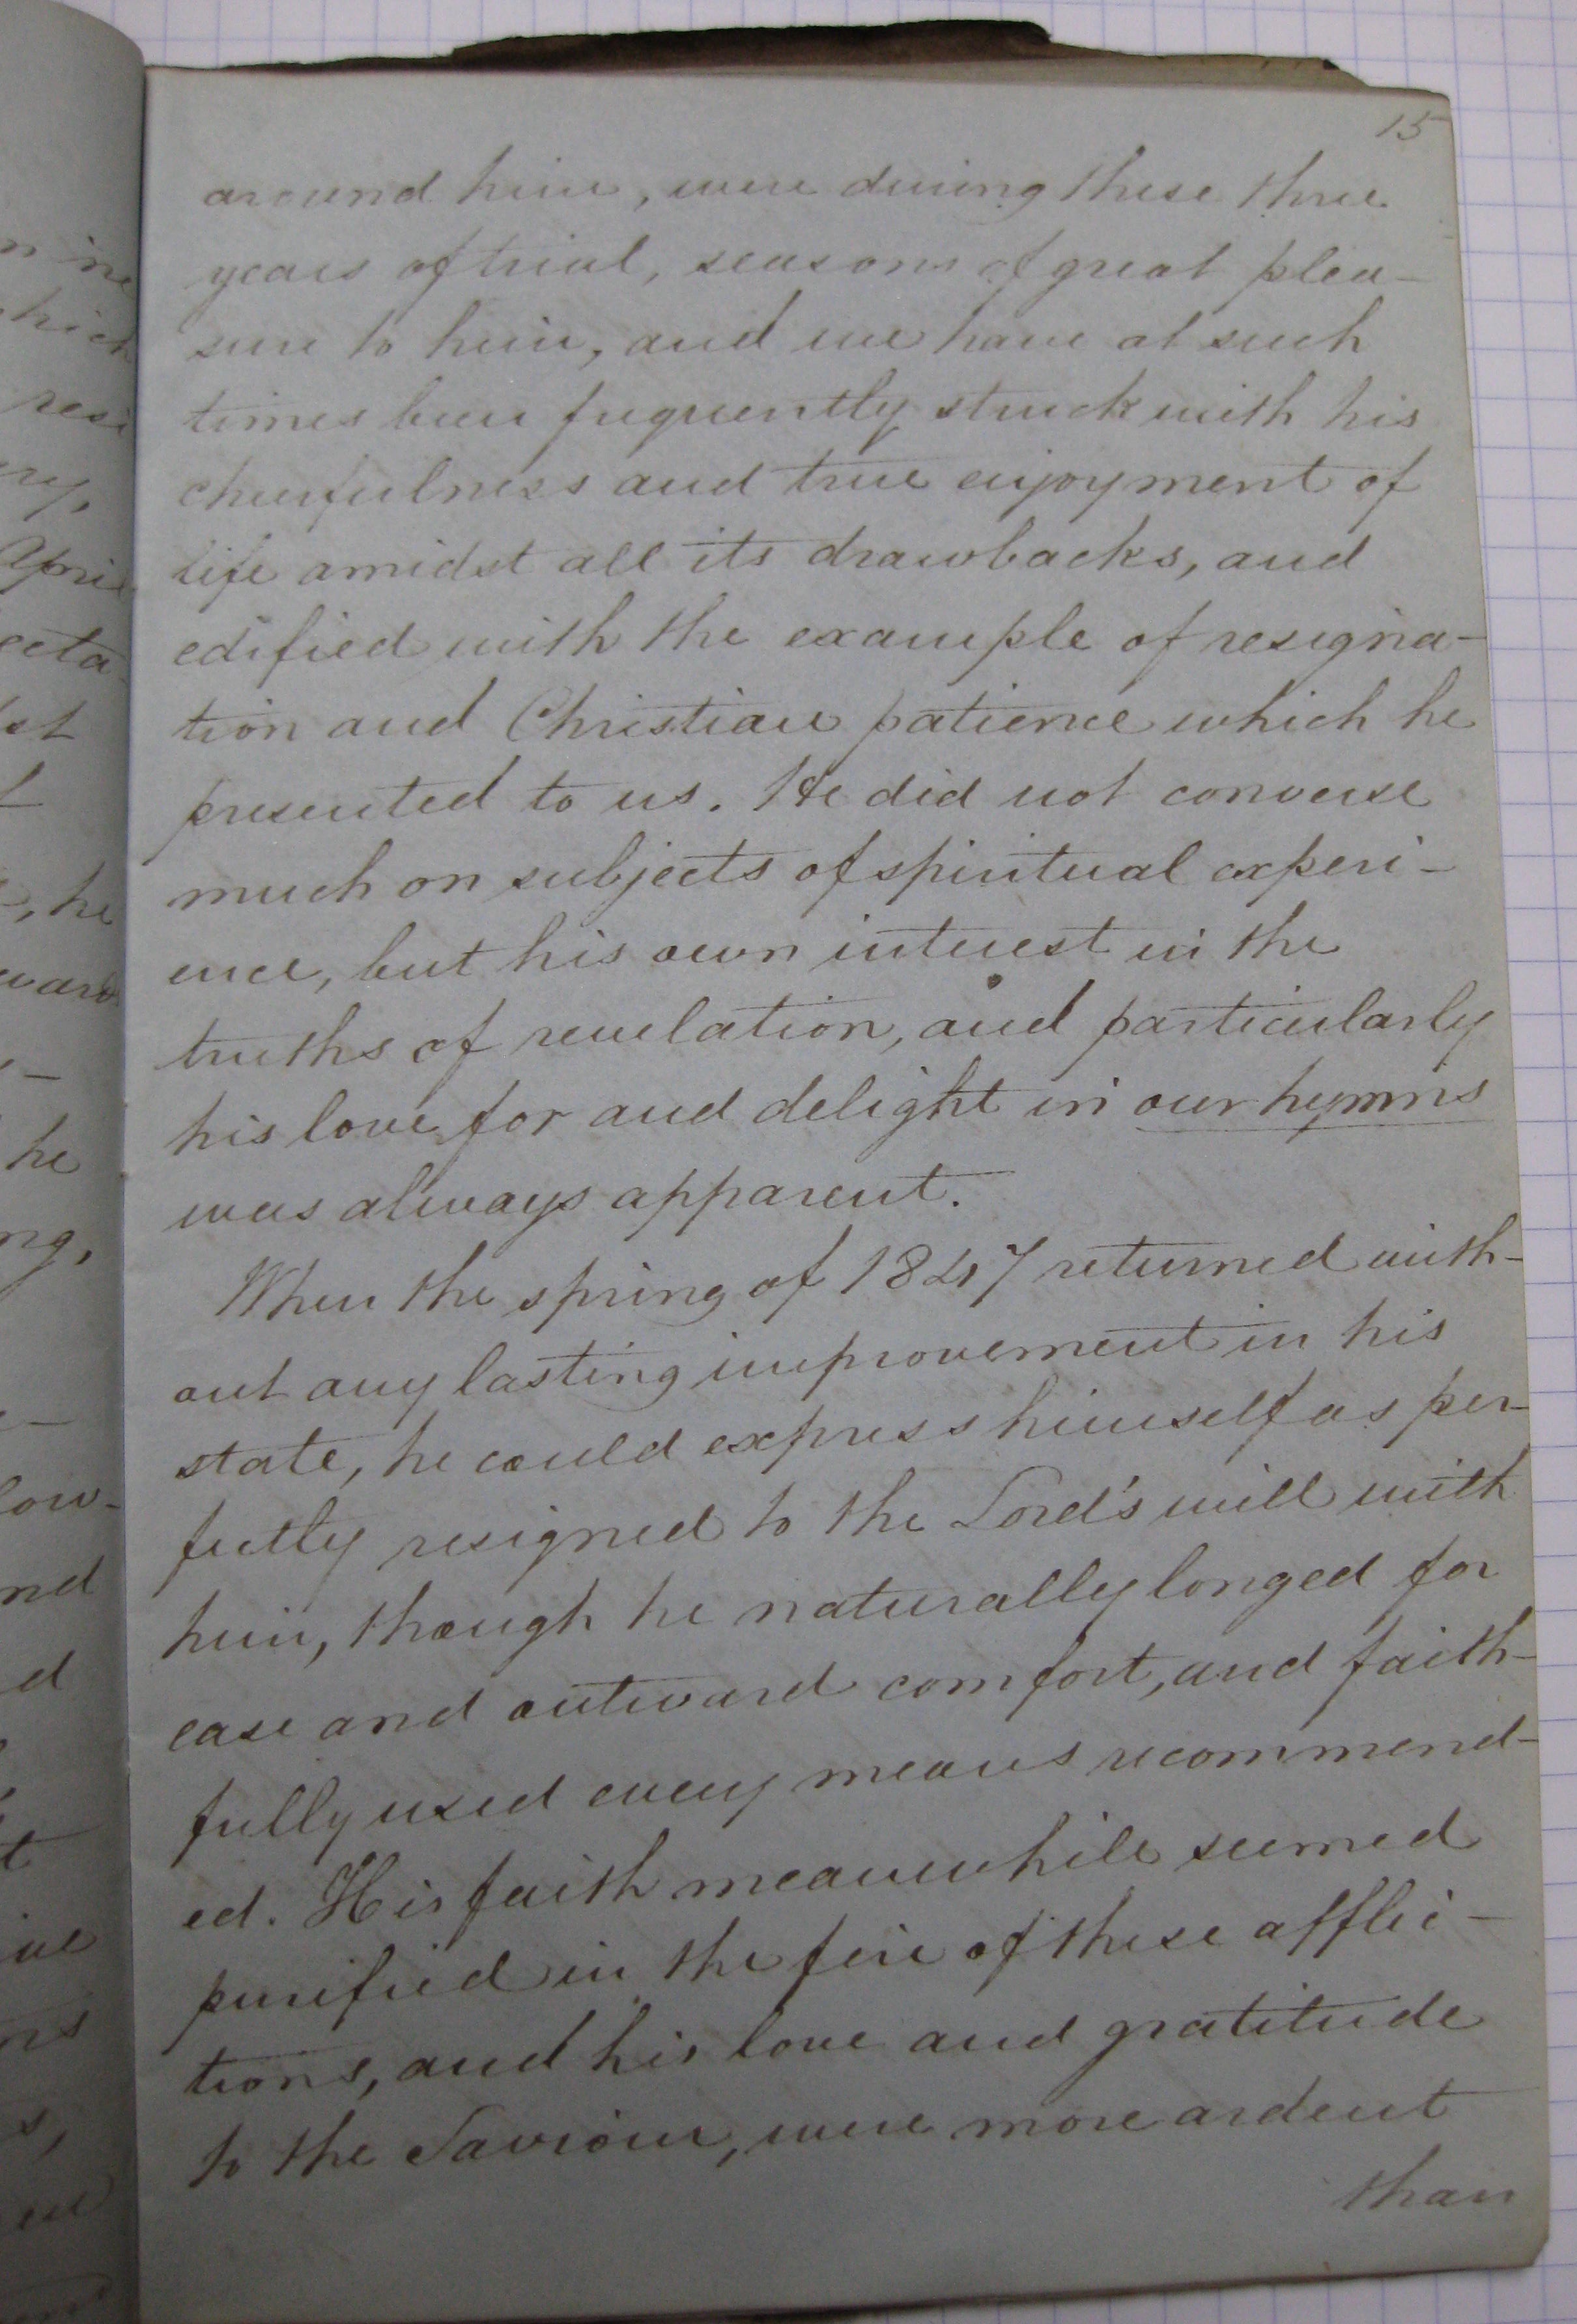 15
around him, were during these three
years of trial, seasons of great plea-
sure to him, and we have at such
times been frequently struck with his
cheerfulness and true enjoyment of
life amidst all its drawbacks, and
edified with the example of resigna-
tion and Christian patience which he
presented to us. He did not converse
much on subjects of spiritual experi-
ence, but his own interest in the
truths of revelation, and particularly
his love for and delight in our hymns
was always apparent.
When the spring of 1847 returned with-
out any lasting improvement in his
state, he could express himself as per-
fectly resigned to the Lord's will with
him, though he naturally longed for
ease and outward comfort, and faith-
fully used every means recommend-
ed. His faith meanwhile seemed
purified in the fire of these afflic-
tions, and his love and gratitude
to the Saviour, were more ardent
than